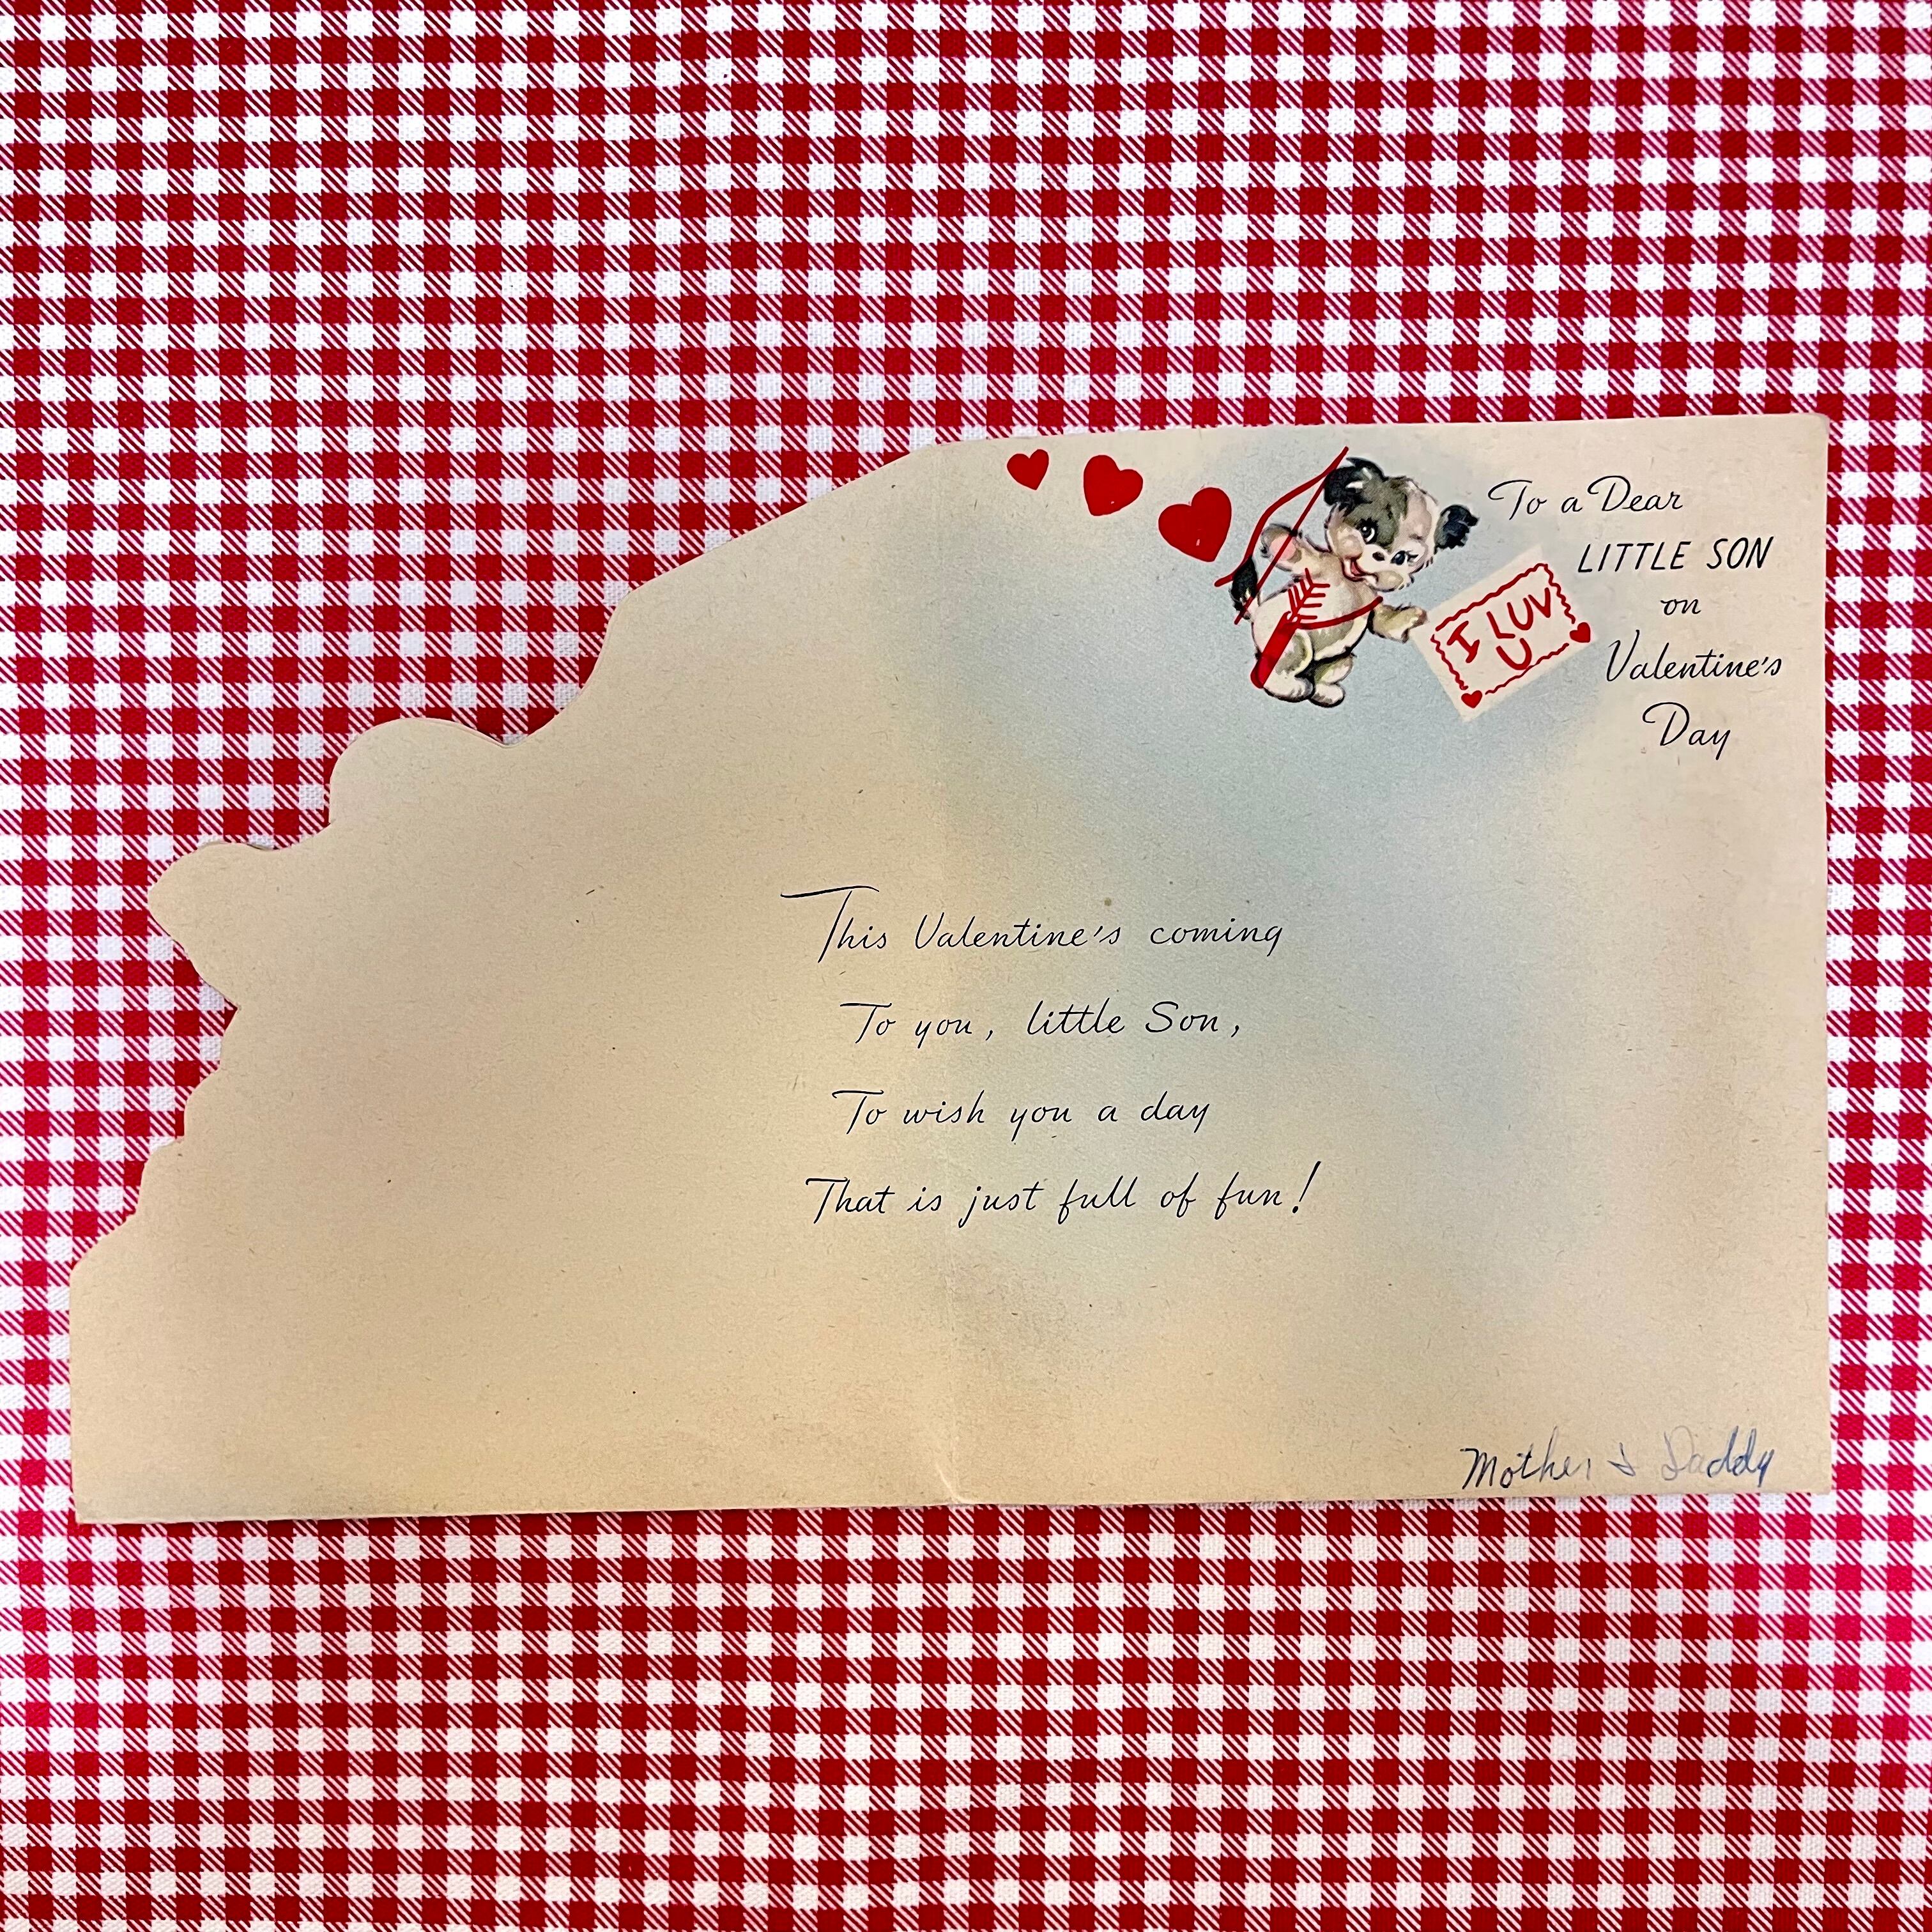 To a Dear
LITTLE SON
on
Valentine's
Day
I LUV
U
This Valentine's coming
To you, little Son,
To wish you a day
That is just full of fun!
Mother & Daddy